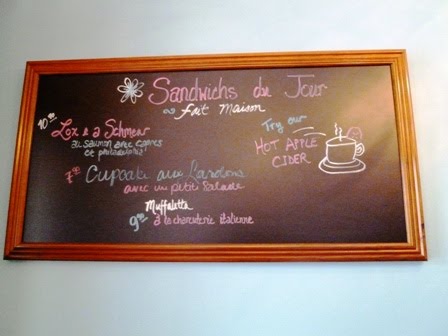 Sandwichs du Jour
fait maison
10.00 Lox & a Schmear
au saumon avec capres
et philadelphia
Try our
HOT APPLE
CIDER
Cupcake aux Lardons
avec un petit salade
Muffaletta
à la charcuterie italienne